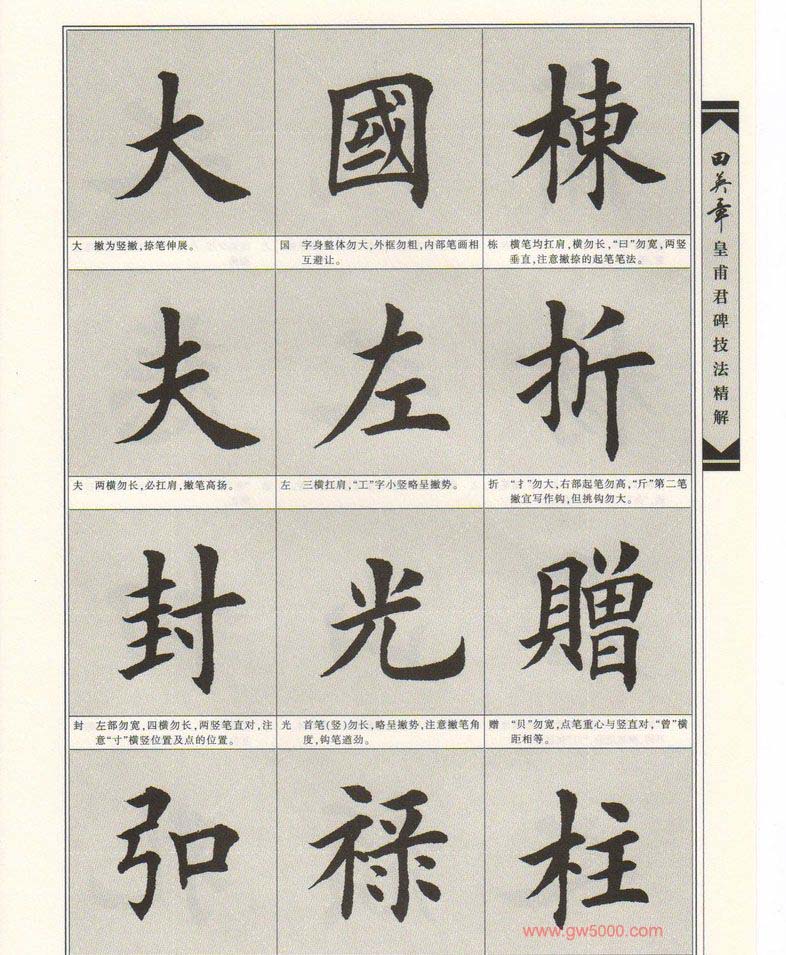 大
國
棟
大 撇为竖撇,捺笔伸展。
国 字身整体勿大,外框勿粗,内部笔画相
互避让。
栋 横笔均扛肩,横勿长,“曰”勿宽,两竖
垂直,注意撇捺的起笔笔法。
夫
左
折
夫 两横勿长,必扛肩,撇笔高扬。
左 三横扛肩,“工”字小竖略呈撇势。
折 “扌”勿大,右部起笔勿高,“斤”第二笔
撇宜写作钩,但挑钩勿大。
封
光
贈
封 左部勿宽,四横勿长,两竖笔直对,注
意“寸”横竖位置及点的位置。
光 首笔(竖)勿长,略呈撇势,注意撇笔角
度,钩笔遒劲。
赠 “贝”勿宽,点笔重心与竖直对,“曾”横
距相等。
弘
禄
柱
田英章皇甫君碑技法精解
www.gw5000.com